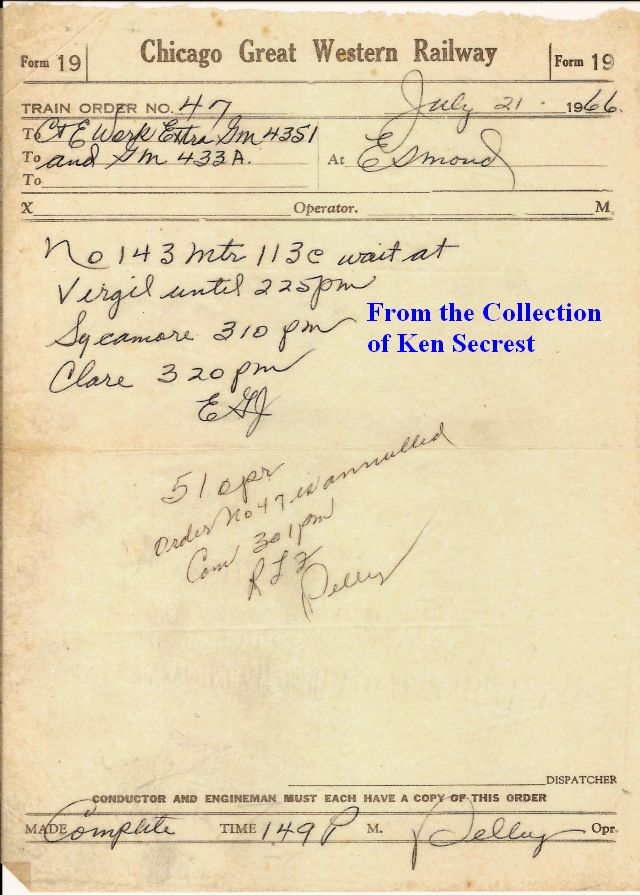 Form 19
Chicago Great Western Railway
Form 19
TRAIN ORDER NO. 47
July 21 1966
To C+E Work Extra Gm 4351
To and Gm 433A.
To
At Esmond
X Operator. M.
No 143 Mtr 113c wait at
Virgil until 225pm
Sycamore 310 pm
Clare 320pm
EGJ
From the Collection
of Ken Secrest
51 opr
Order No 47 is annulled
Com 301pm
DISPATCHER
CONDUCTOR AND ENGINEMAN MUST EACH HAVE A COPY OF THIS ORDER
MADE Complete TIME 149 P M. Opr.